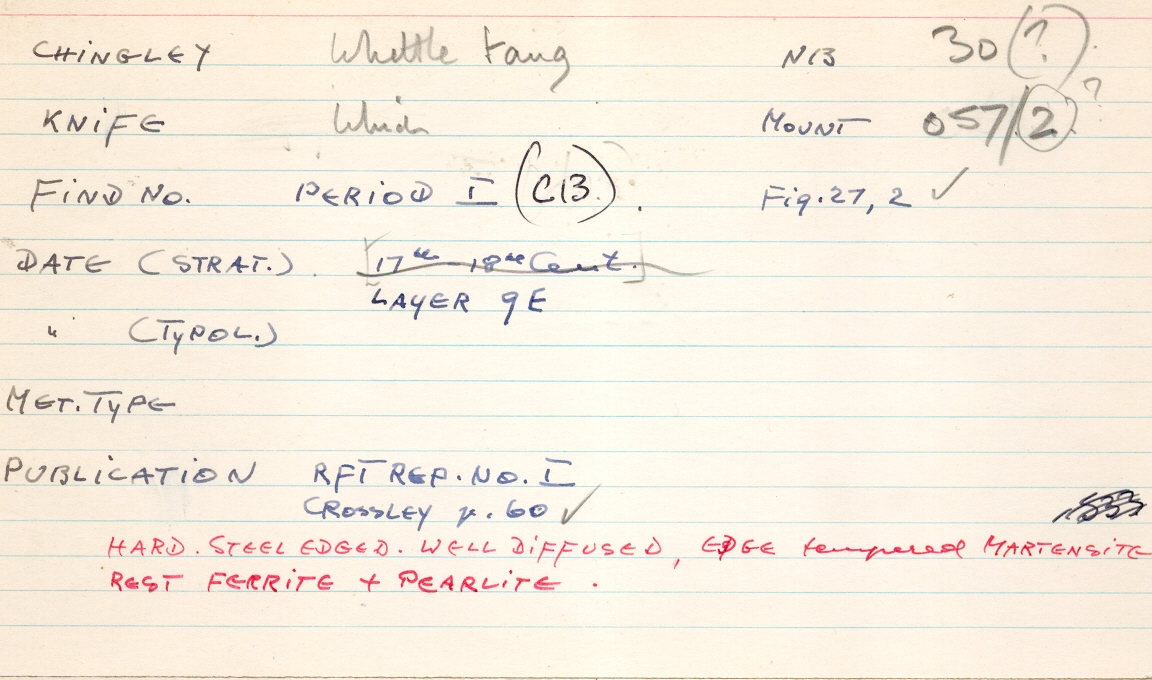 CHINGLEY Whittle tang N13 30(?)
KNIFE Which MOUNT 057/2 ?
FIND NO. PERIOD I (C13). Fig. 27, 2 ✓
DATE (STRAT.). [17th - 18th Cent.]
LAYER 9E
" (TYPOL.)
MET. TYPE
PUBLICATION RFT REP. NO. I
CROSSLEY p. 60 ✓
HARD. STEEL EDGED. WELL DIFFUSED, EDGE tempered MARTENSITE
REST FERRITE + PEARLITE.